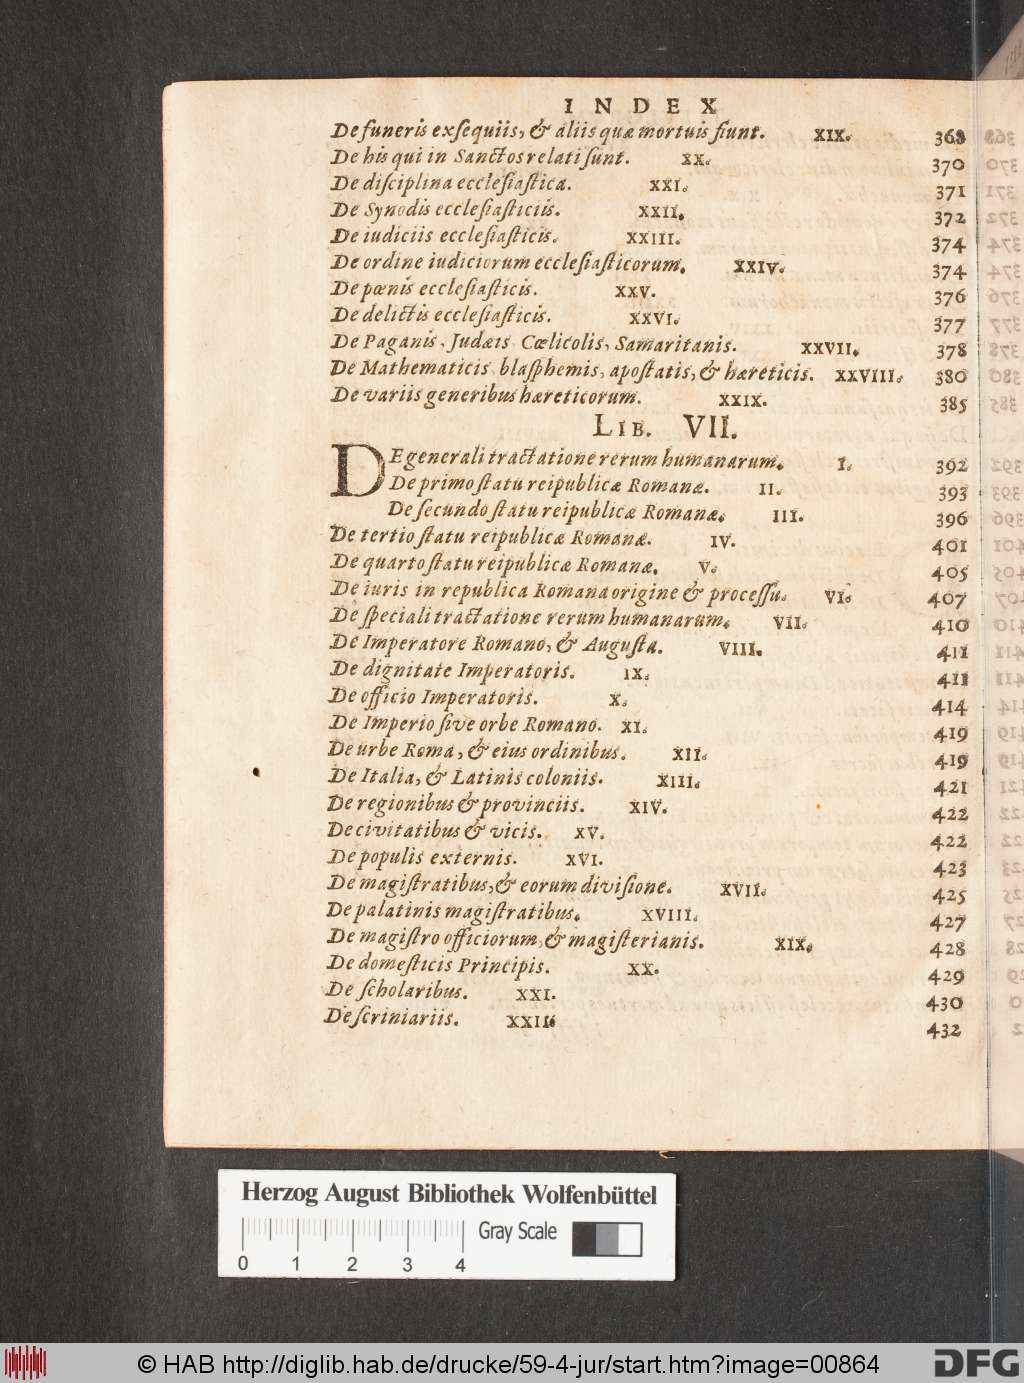 INDEX
De funeris exſequiis, & aliis quæ mortuis fiunt. XIX. 368
De his qui in Sanctos relati ſunt. XX. 370
De diſciplina eccleſiaſtica. XXI. 371
De Synodis eccleſiaſticiis. XXII. 372
De iudiciis eccleſiaſticis. XXIII. 374
De ordine iudiciorum eccleſiaſticorum. XXIV. 374
De pœnis eccleſiaſticis. XXV. 376
De delictis eccleſiaſticis. XXVI. 377
De Paganis, Judæis Cœlicolis, Samaritanis. XXVII. 378
De Mathematicis blaſphemis, apoſtatis, & hæreticis. XXVIII. 380
De variis generibus hæreticorum. XXIX. 385
LIB. VII.
DE generali tractatione rerum humanarum. I. 392
De primo ſtatu reipublicæ Romanæ. II. 393
De ſecundo ſtatu reipublicæ Romanæ. III. 396
De tertio ſtatu reipublicæ Romanæ. IV. 401
De quarto ſtatu reipublicæ Romanæ. V. 405
De iuris in republica Romana origine & proceſſu. VI. 407
De ſpeciali tractatione rerum humanarum. VII. 410
De Imperatore Romano, & Auguſta. VIII. 411
De dignitate Imperatoris. IX. 411
De officio Imperatoris. X. 414
De Imperio ſive orbe Romano. XI. 419
De urbe Roma, & eius ordinibus. XII. 419
De Italia, & Latinis coloniis. XIII. 421
De regionibus & provinciis. XIV. 422
De civitatibus & vicis. XV. 422
De populis externis. XVI. 423
De magiſtratibus, & eorum diviſione. XVII. 425
De palatinis magiſtratibus. XVIII. 427
De magiſtro officiorum, & magiſterianis. XIX. 428
De domeſticis Principis. XX. 429
De ſcholaribus. XXI. 430
De ſcriniariis. XXII. 432
Herzog August Bibliothek Wolfenbüttel
Gray Scale
0 1 2 3 4
© HAB http://diglib.hab.de/drucke/59-4-jur/start.htm?image=00864
DFG